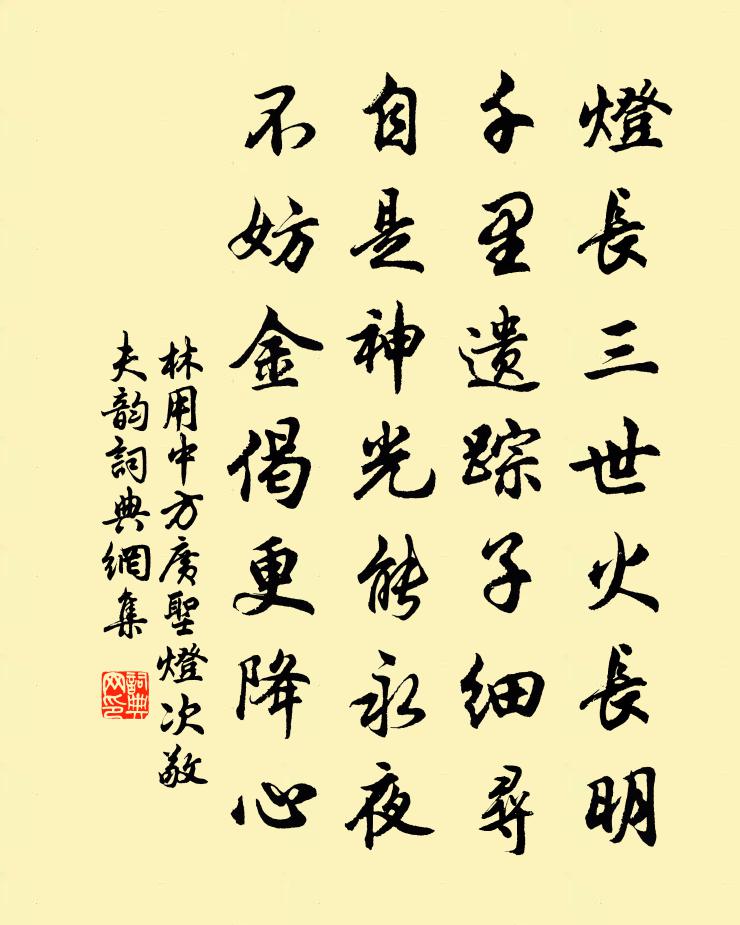 燈長三世火長明
千里遗踪子細尋
自是神光能永夜
不妨金偈更降心
林用中方廣聖燈次敬
夫韵詞典網集
詞典網印